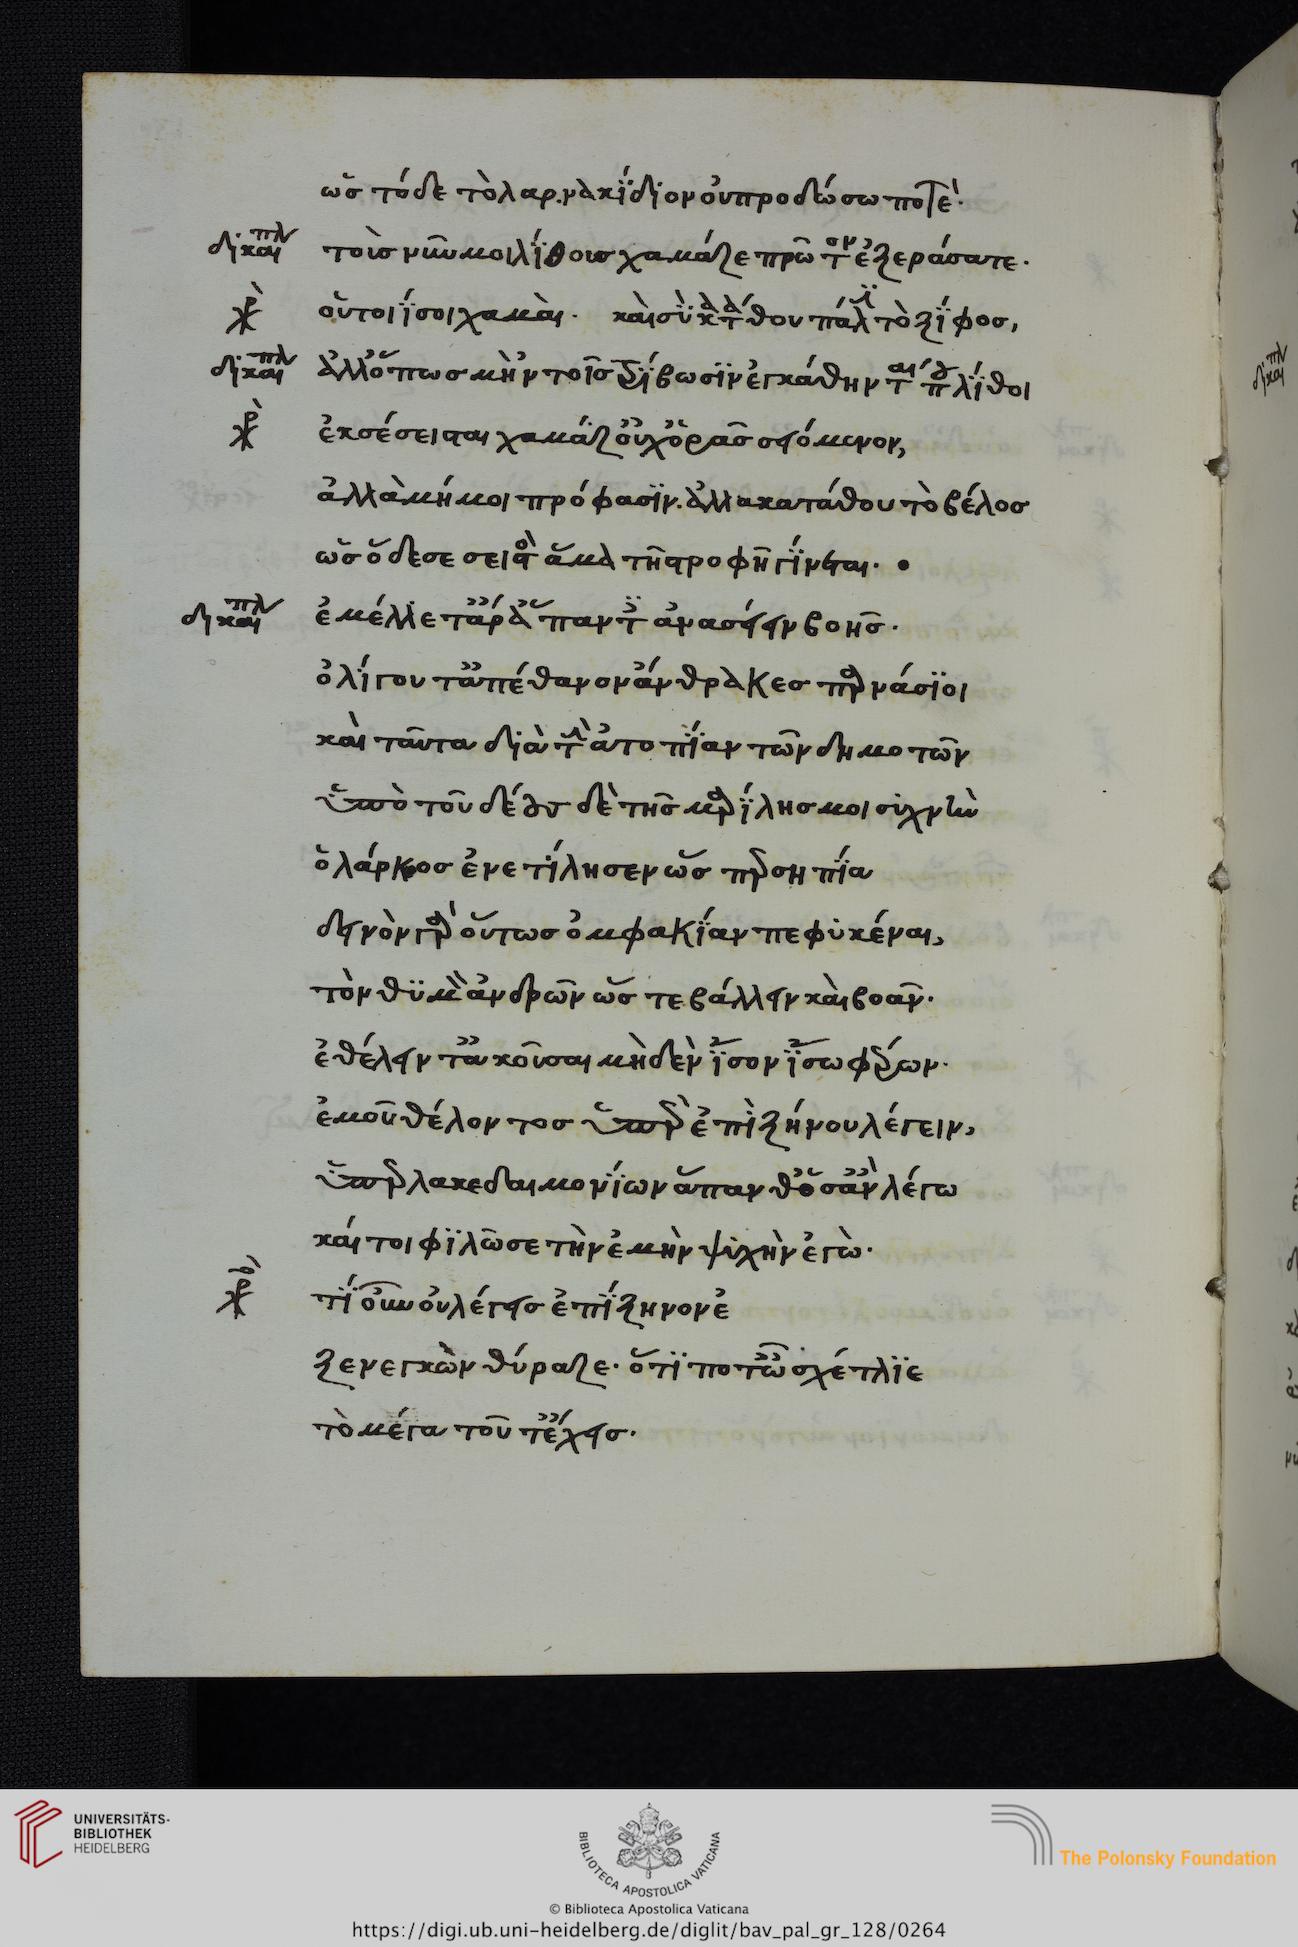 ὡς τόδε τὸ λαρ.νακίδιον οὐ προδώσω ποτέ.
δικαιπλ τοὺς νῦν μοι λίθους χαμάζε πρῶτον ἐξεράσατε.
χρ οὗτοί σοι χαμαί. καὶ σὺ κατάθου πάλι τὸ ξίφος,
δικαιπλ ἀλλ' ὅπως μὴ 'ν τοῖς τρίβωσιν ἐγκάθηνται που λίθοι
χρ ἐκσέσεισται χαμάζ' οὐχ ὁρᾶς σειόμενον,
ἀλλὰ μή μοι πρόφασιν. ἀλλὰ κατάθου τὸ βέλος
ὡς ὅδε σεσειστὸς ἅμα τῆ στροφῆ γίνεται.
δικαιπλ ἐμέλλετ' ἄρ' ἅπαντες ἀνασείειν βοῆς.
ὀλίγου τ' ἀπέθανον ἄνθρακες παρνάσιοι
καὶ ταῦτα διὰ τὴν ἀτοπίαν τῶν δημοτῶν
ὑπὸ τοῦ δέους δὲ τῆς μαρίλης μοι συχνὴν
ὁ λάρκος ἐνετίλησεν ὥσπερ σηπία
δεινὸν γὰρ οὕτως ὀμφακίαν πεφυκέναι,
τὸν θυμὸν ἀνδρῶν ὥστε βάλλειν καὶ βοᾶν.
ἐθέλειν τ' ἀκοῦσαι μηδὲν ἴσον ἴσω φέρων.
ἐμοῦ θέλοντος ὑπὲρ ἐπιξήνου λέγειν,
ὑπὲρ λακεδαιμονίων ἅπανθ' ὅσ' ἂν λέγω
καίτοι φιλῶ σε τὴν ἐμὴν ψυχὴν ἐγώ.
χορ τί οὖν οὐ λέγεις ἐπίξηνον ἐ
ξενεγκὼν θύραζε. ὅτι ποτ' ὦ σχέτλιε
τὸ μέγα τοῦτ' ἔχεις.
UNIVERSITÄTS-
BIBLIOTHEK
HEIDELBERG
BIBLIOTECA APOSTOLICA VATICANA
The Polonsky Foundation
© Biblioteca Apostolica Vaticana
https://digi.ub.uni-heidelberg.de/diglit/bav_pal_gr_128/0264